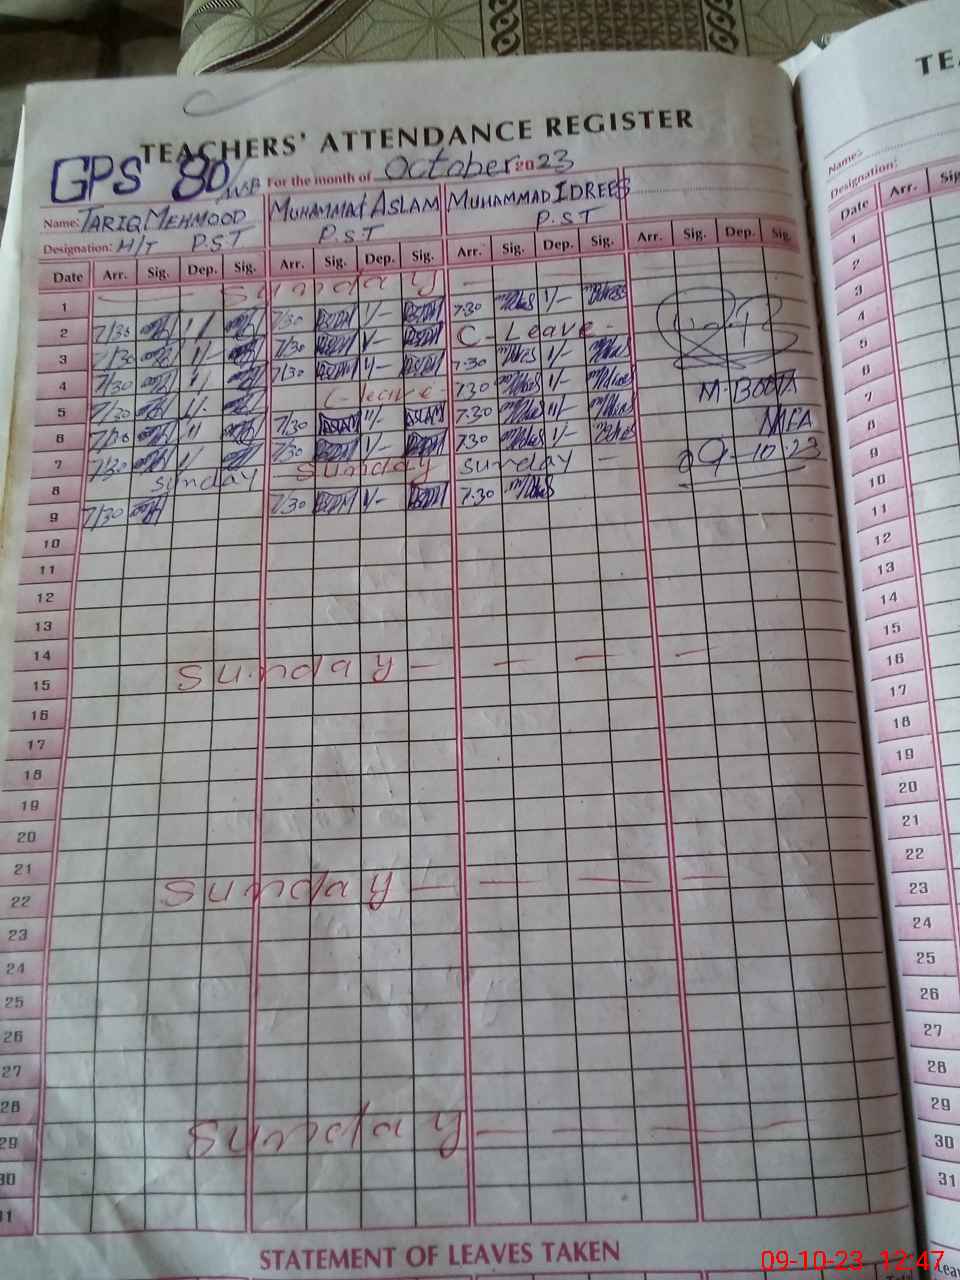 TEACHERS' ATTENDANCE REGISTER
GPS 80/WB For the month of October 2023
Name: TARIQ MEHMOOD MUHAMMAD ASLAM MUHAMMAD IDREES
Designation: H/T P.S.T P.S.T P.S.T
Date Arr. Sig. Dep. Sig. Arr. Sig. Dep. Sig. Arr. Sig. Dep. Sig. Arr. Sig. Dep. Sig.
1 Sunday
2 7/30 7/30 1/- 7-30 1/-
3 7/30 7/30 1/- C. Leave
4 7/30 7/30 1/- 7-30 1/-
5 7/30 C- leave 7-30 1/-
6 7/30 7/30 11/- ASLAM 7-30 11/-
7 7/30 7/30 1/- 7-30 1/-
8 Sunday Sunday Sunday
9 7/30 7/30 1/- 7-30
M. BOOTA
MEA
09-10-23
10
11
12
13
14
15 Sunday
16
17
18
19
20
21
22 Sunday
23
24
25
26
27
28
29 Sunday
30
31
STATEMENT OF LEAVES TAKEN
TE
Name:
Designation:
Date Arr. Sig
1
2
3
4
5
6
7
8
9
10
11
12
13
14
15
16
17
18
19
20
21
22
23
24
25
26
27
28
29
30
31
09-10-23 12:47